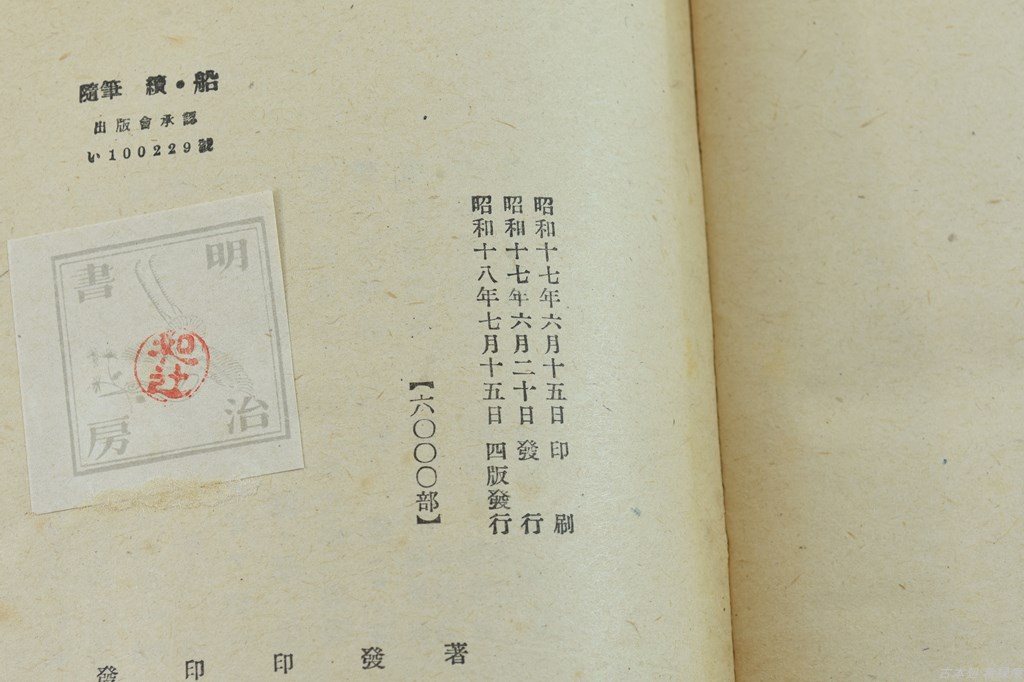 隨筆 續・船
出版會承認
い100229號
昭和十七年六月十五日 印刷
昭和十七年六月二十日 發行
昭和十八年七月十五日 四版發行
【六〇〇〇部】
明治
書房
著
發
印
印
發